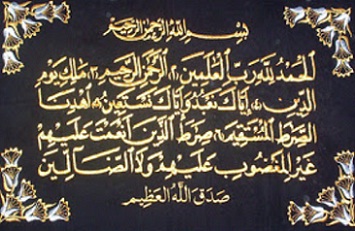 بِسْمِ اللهِ الرَّحْمٰنِ الرَّحِيْمِ
الْحَمْدُ لِلّٰهِ رَبِّ الْعٰلَمِيْنَ ۱ الرَّحْمٰنِ الرَّحِيْمِ ۲ مٰلِكِ يَوْمِ
الدِّيْنِ ۳ إِيَّاكَ نَعْبُدُ وَإِيَّاكَ نَسْتَعِيْنُ ۴ اهْدِنَا
الصِّرَاطَ الْمُسْتَقِيْمَ ۵ صِرَاطَ الَّذِيْنَ أَنْعَمْتَ عَلَيْهِمْ
غَيْرِ الْمَغْضُوْبِ عَلَيْهِمْ وَلَا الضَّالِّيْنَ
صدق الله العظيم